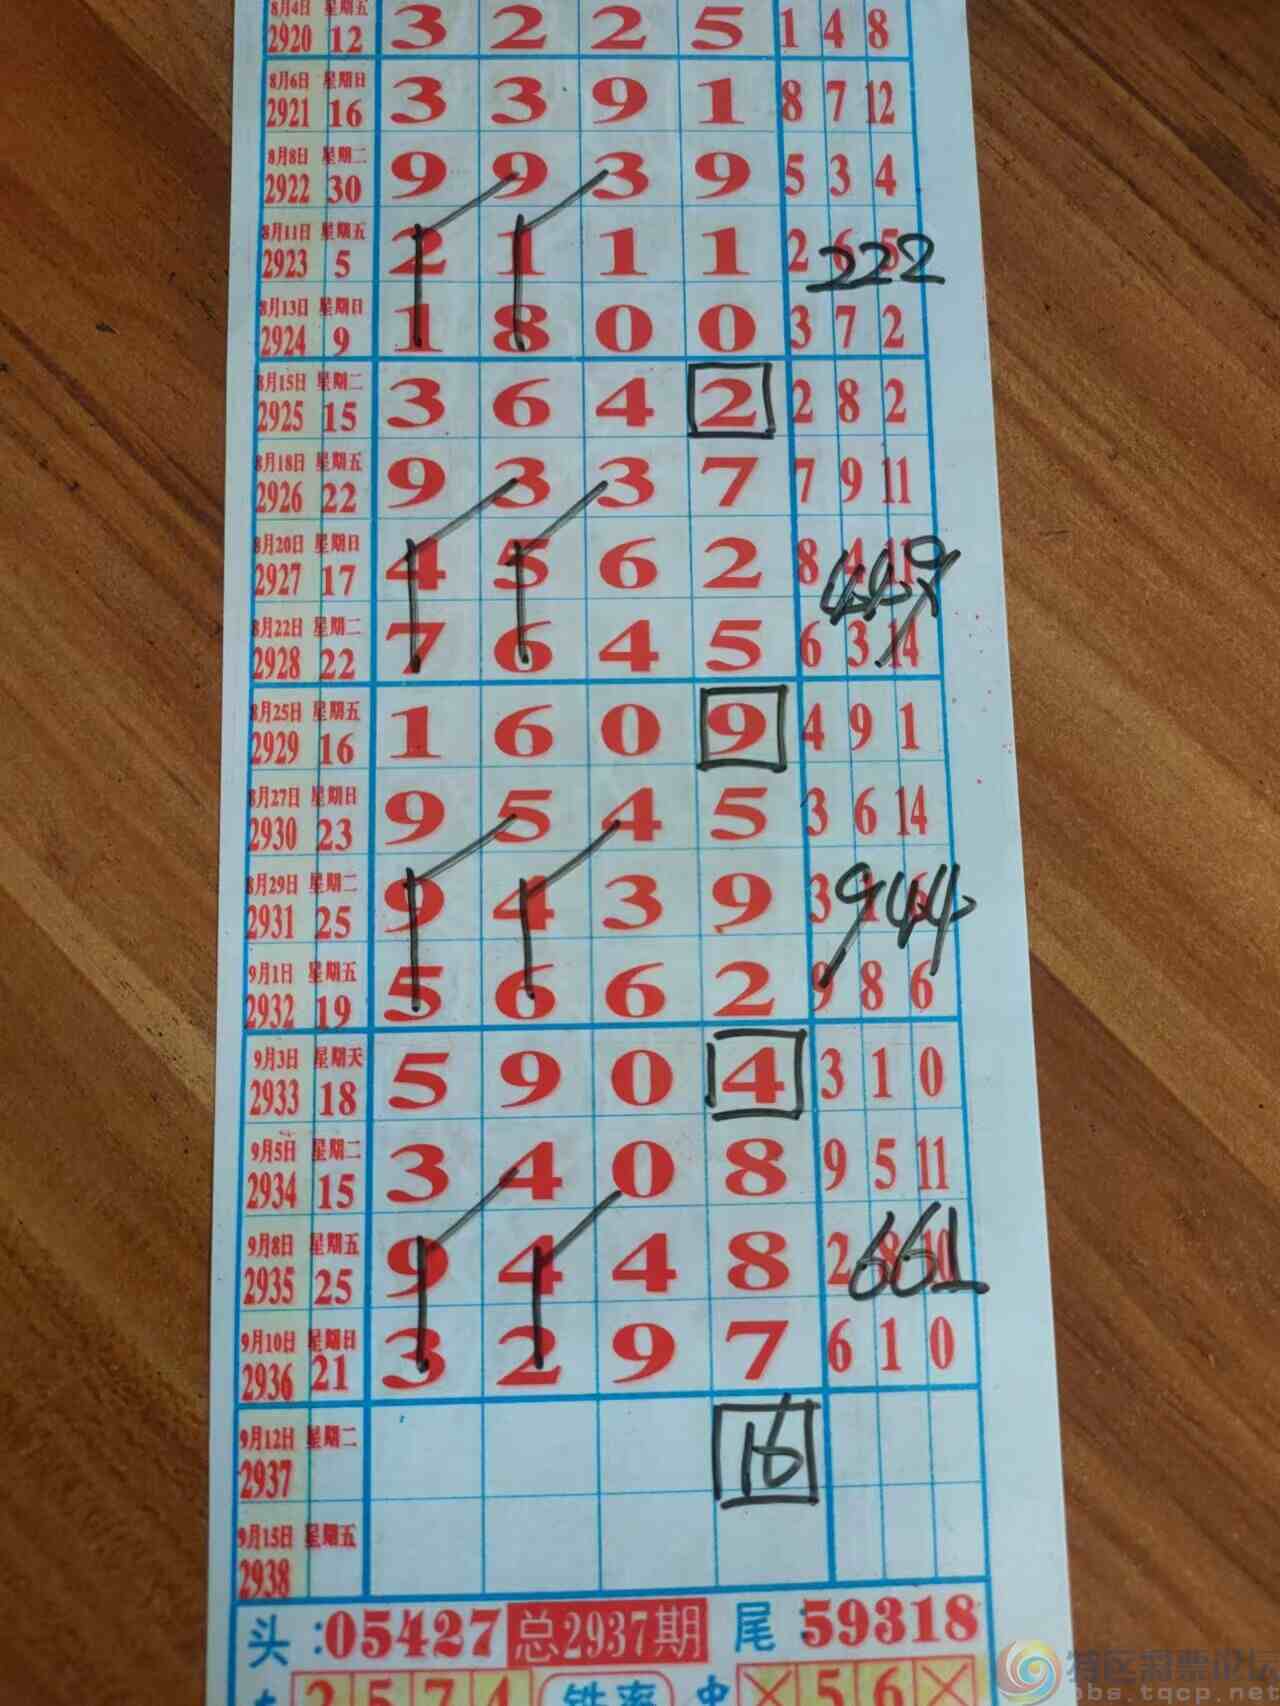 8月4日 星期五
2920 12 3 2 2 5 1 4 8
8月6日 星期日
2921 16 3 3 9 1 8 7 12
8月8日 星期二
2922 30 9 9 3 9 5 3 4
8月11日 星期五
2923 5 2 1 1 1 2 6 5
222
8月13日 星期日
2924 9 1 8 0 0 3 7 2
8月15日 星期二
2925 15 3 6 4 2 2 8 2
8月18日 星期五
2926 22 9 3 3 7 7 9 11
8月20日 星期日
2927 17 4 5 6 2 8 4 11
449
8月22日 星期二
2928 22 7 6 4 5 6 3 14
8月25日 星期五
2929 16 1 6 0 9 4 9 1
8月27日 星期日
2930 23 9 5 4 5 3 6 14
8月29日 星期二
2931 25 9 4 3 9 3 1 6
944
9月1日 星期五
2932 19 5 6 6 2 9 8 6
9月3日 星期天
2933 18 5 9 0 4 3 1 0
9月5日 星期二
2934 15 3 4 0 8 9 5 11
9月8日 星期五
2935 25 9 4 4 8 2 8 10
661
9月10日 星期日
2936 21 3 2 9 7 6 1 0
9月12日 星期二
2937 16
9月15日 星期五
2938
头:05427 总2937期 尾:59318
2 5 7 4 铁率 中 X 5 6 X
特区彩票论坛
bbs.tqcp.net